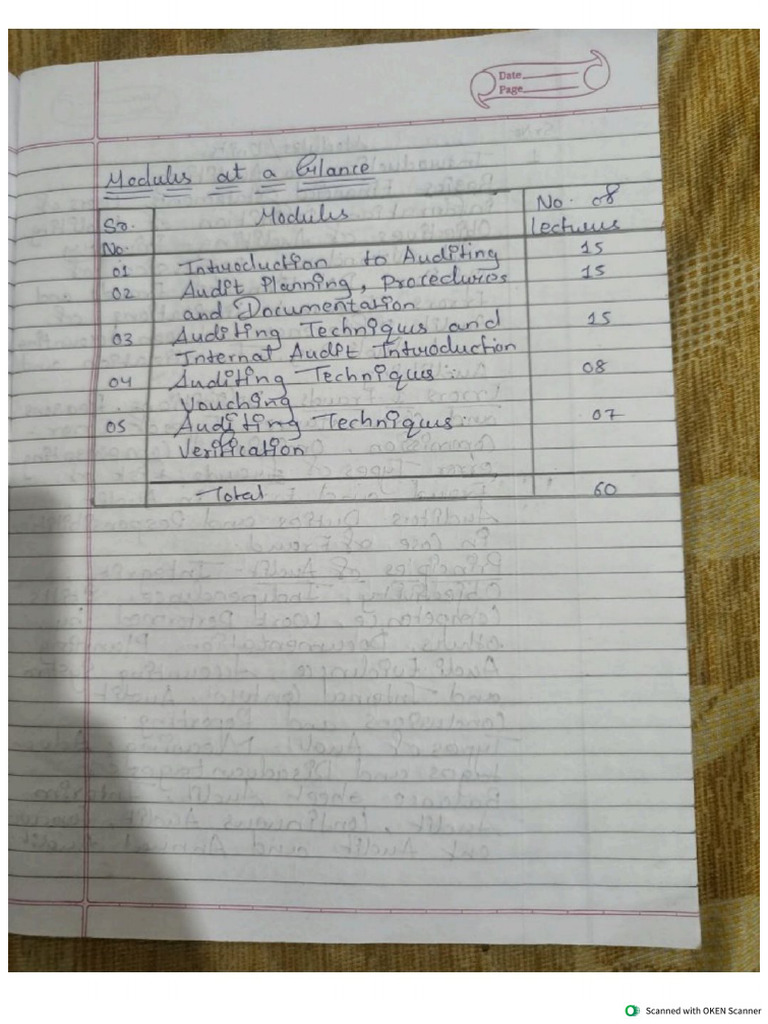 Date
Page
Modules at a Glance
Sr. Modules No. of
No. Lectures
01 Introduction to Auditing 15
02 Audit Planning, Procedures 15
and Documentation
03 Auditing Techniques and 15
Internal Audit Introduction
04 Auditing Techniques: 08
Vouching
05 Auditing Techniques: 07
Verification
Total 60
Scanned with OKEN Scanner